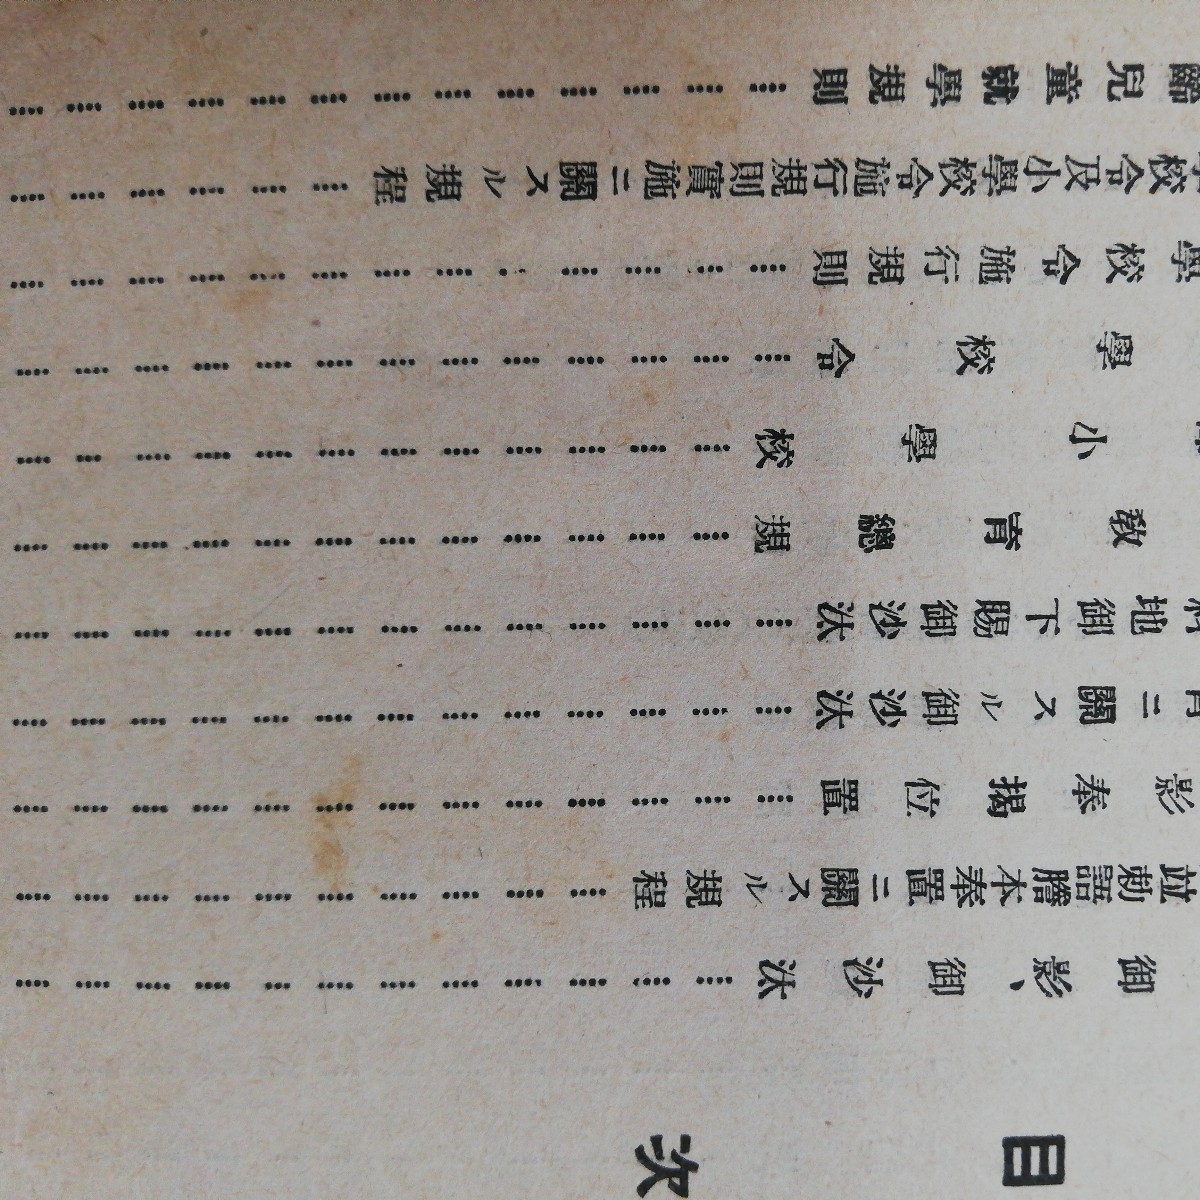 目次
御影、御沙汰
竝勅語謄本奉置ニ關スル規程
影奉揭位置
ニ關スル御沙汰
地御下賜御沙汰
教育總規
小學校
學校令
學校令施行規則
校令及小學校令施行規則實施ニ關スル規程
齡兒童就學規則